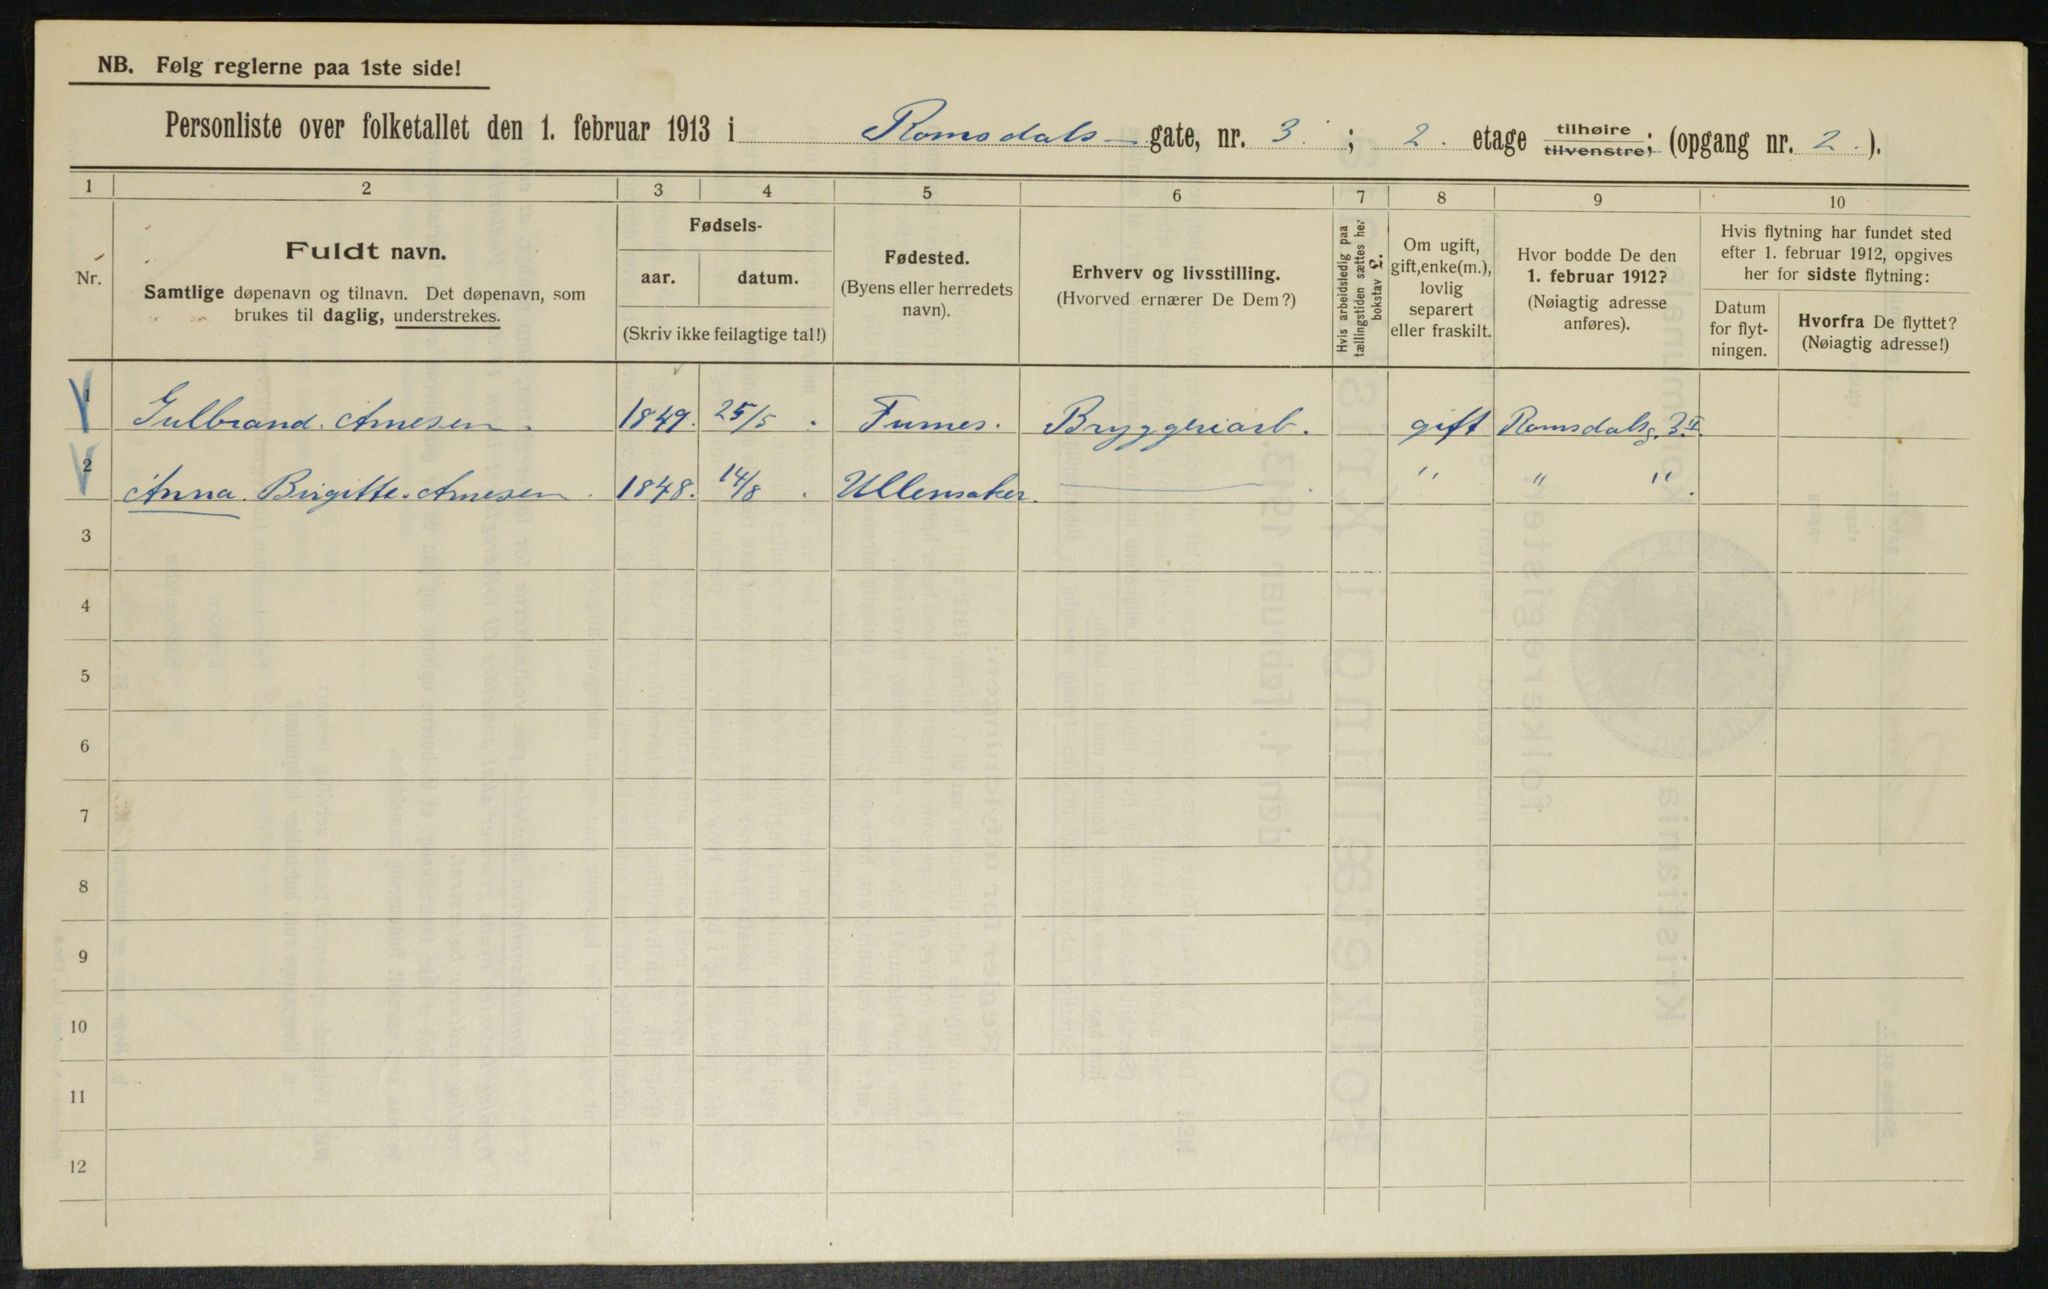 NB. Følg reglerne paa 1ste side!
Personliste over folketallet den 1. februar 1913 i Romsdals- gate, nr. 3. ; 2. etage tilhøire tilvenstre; (opgang nr. 2. ).
1 2 3 4 5 6 7 8 9 10
Nr.
Fuldt navn.
Samtlige døpenavn og tilnavn. Det døpenavn, som
brukes til daglig, understrekes.
Fødsels-
aar. datum.
(Skriv ikke feilagtige tal!)
Fødested.
(Byens eller herredets
navn).
Erhverv og livsstilling.
(Hvorved ernærer De Dem?)
Hvis arbeidsledig paa
tællingstiden sættes her
bokstav L.
Om ugift,
gift, enke(m.),
lovlig
separert
eller fraskilt.
Hvor bodde De den
1. februar 1912?
(Nøiagtig adresse
anføres).
Hvis flytning har fundet sted
efter 1. februar 1912, opgives
her for sidste flytning:
Datum
for flyt-
ningen.
Hvorfra De flyttet?
(Nøiagtig adresse!)
1 Gulbrand. Arnesen. 1849. 25/5. Furnes. Bryggeriarb. gift Romsdalsg. 3. II.
2 Anna. Birgitte. Arnesen. 1848. 14/8. Ullensaker. — " " "
3
4
5
6
7
8
9
10
11
12